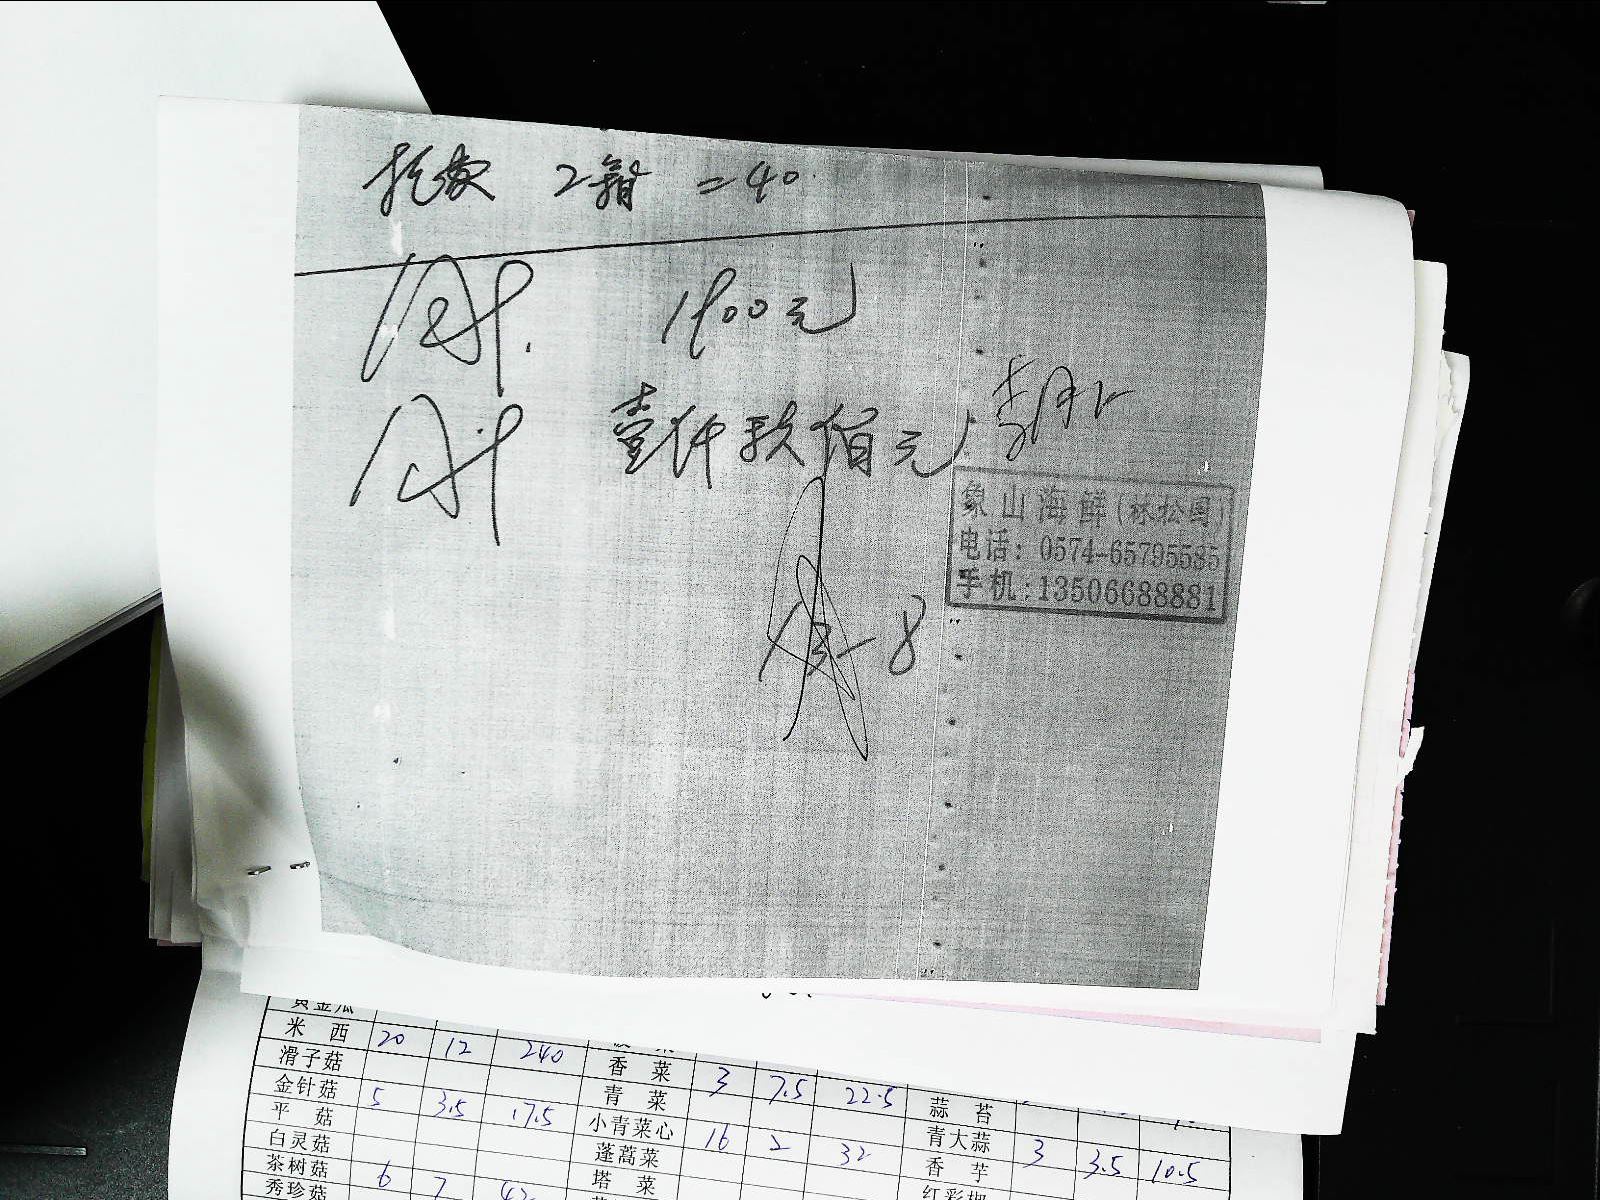 2箱 =40
1900元
壹仟玖佰元
象山海鲜(林松周)
电话: 0574-65795585
手机:13506688881
8
黄金瓜
米 西 20 12 240
滑子菇 香 菜 3 7.5 22.5
金针菇 5 3.5 17.5 青 菜 蒜 苔
平 菇 小青菜心 16 2 32 青大蒜 3 3.5 10.5
白灵菇 蓬蒿菜 香 芋
茶树菇 6 7 42 塔 菜 红彩椒
秀珍菇